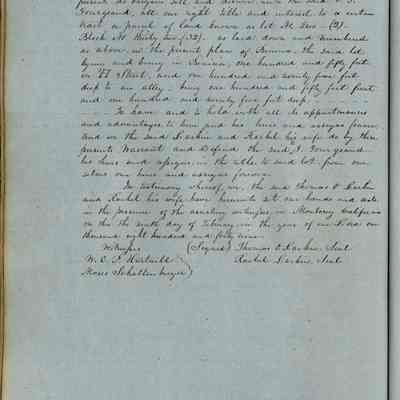 presents do bargain sell and deliver unto the said J.
Fourgeaud, all our right title and interest to a certain
tract or parcel of land known as lot No Two (2).
Block No Thirty two (32). as laid down and numbered
as above in the present plan of Benicia, the said lot
lying and being in Benicia, One hundred and fifty feet
on Street, and one hundred and twenty five feet
deep to an alley; being one hundred and fifty feet front
and one hundred and twenty five feet deep.
To have and to hold with all its appurtenances
and advantages to him and his heirs and assigns forever
and we the said Larkin and Rachel his wife do by these
presents Warrant and Defend the said J. Fourgeaud
his heirs and assigns, in the title to said lot, from our
selves our heirs and assigns forever.
In testimony whereof we, the said Thomas O Larkin
and Rachel his wife, have hereunto set our hands and seals
in the presence of the assisting witnesses in Monterey California
on this the ninth day of February in the year of our Lord one
thousand eight hundred and forty nine.
Witnesses (Signed) Thomas O Larkin Seal
W. E. P. Hartnell Rachel Larkin Seal
Moses Schallenberger